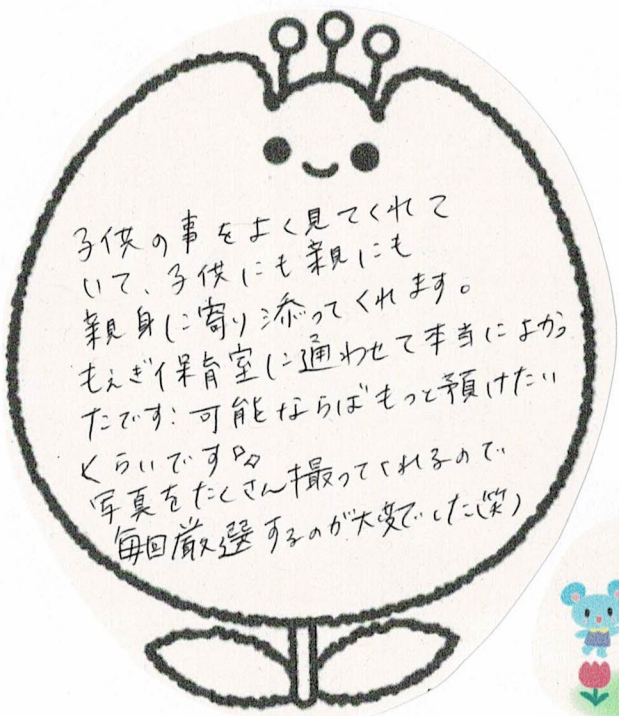 子供の事をよく見てくれて
いて、子供にも親にも
親身に寄り添ってくれます。
もえぎ保育室に通わせて本当によかっ
たです! 可能ならばもっと預けたい
くらいです
写真をたくさん撮ってくれるので
毎回厳選するのが大変でした(笑)